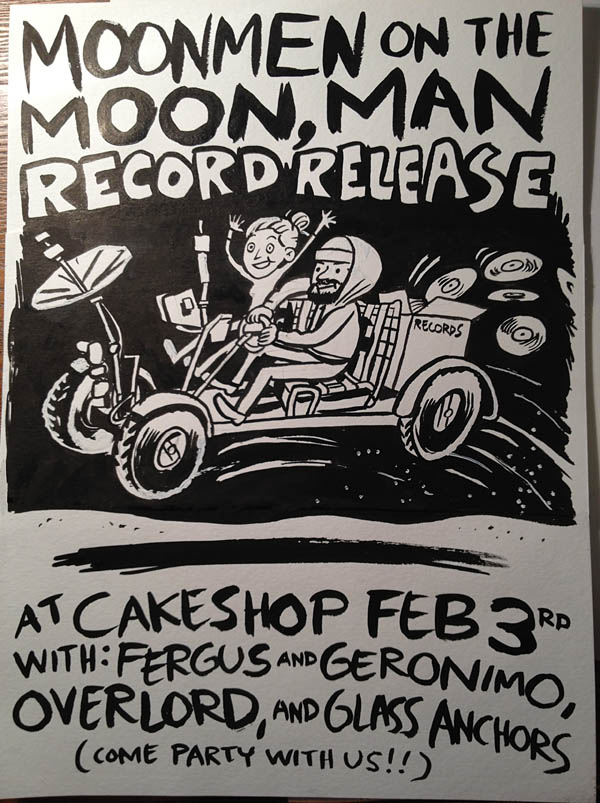 MOONMEN ON THE
MOON, MAN
RECORD RELEASE
RECORDS
AT CAKESHOP FEB 3RD
WITH: FERGUS AND GERONIMO,
OVERLORD, AND GLASS ANCHORS
(COME PARTY WITH US!!)